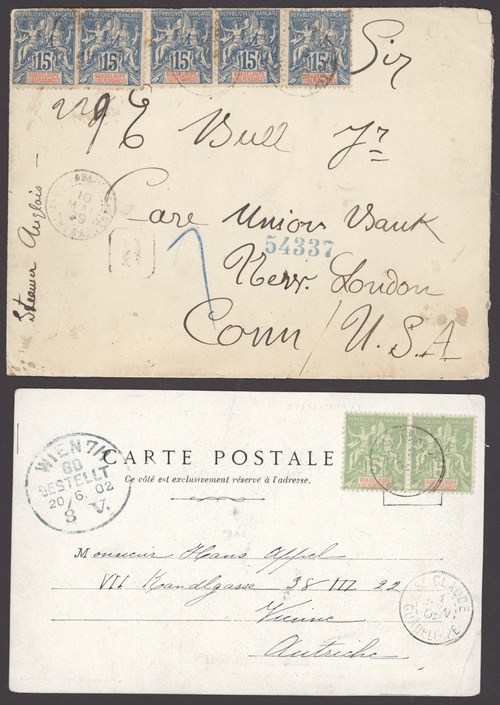 RÉPUBLIQUE FRANÇAISE RÉPUBLIQUE FRANÇAISE RÉPUBLIQUE FRANÇAISE RÉPUBLIQUE FRANÇAISE RÉPUBLIQUE FRANÇAISE
15 15 15 15 15
Sir
Bull Jr
Steamer Anglais
Care Union Bank
R
54337
New London
Conn / U.S.A
RÉPUBLIQUE FRANÇAISE RÉPUBLIQUE FRANÇAISE
5
WIEN 7/1
60
BESTELLT
20 6. 02
8 V.
CARTE POSTALE
Ce côté est exclusivement réservé à l'adresse.
Monsieur Hans Appel
VII Kandlgasse 38 III 22
Vienne
Autriche
ST CLAUDE
GUADELOUPE